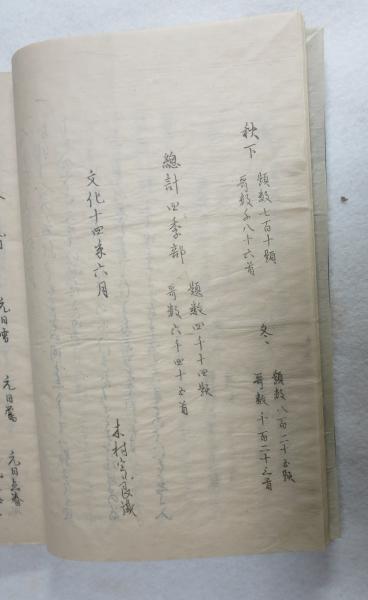 秋下
題数七百十題
哥数千八十六首
冬、
題数八百二十五題
哥数千百二十三首
總計四季部
題数四千十四題
哥数六千四十五首
文化十四年六月
木村定良識
元日雪
元日鶯